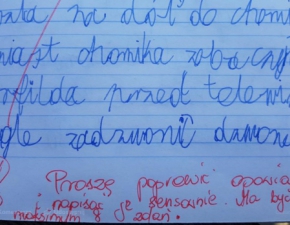 na dół do chomi
miast chomika zobaczy
przed telewi
gle zadzwonił dzwone
Proszę poprawić opowia
i napisać je sensownie. Ma być
maksimum 8 zdań.